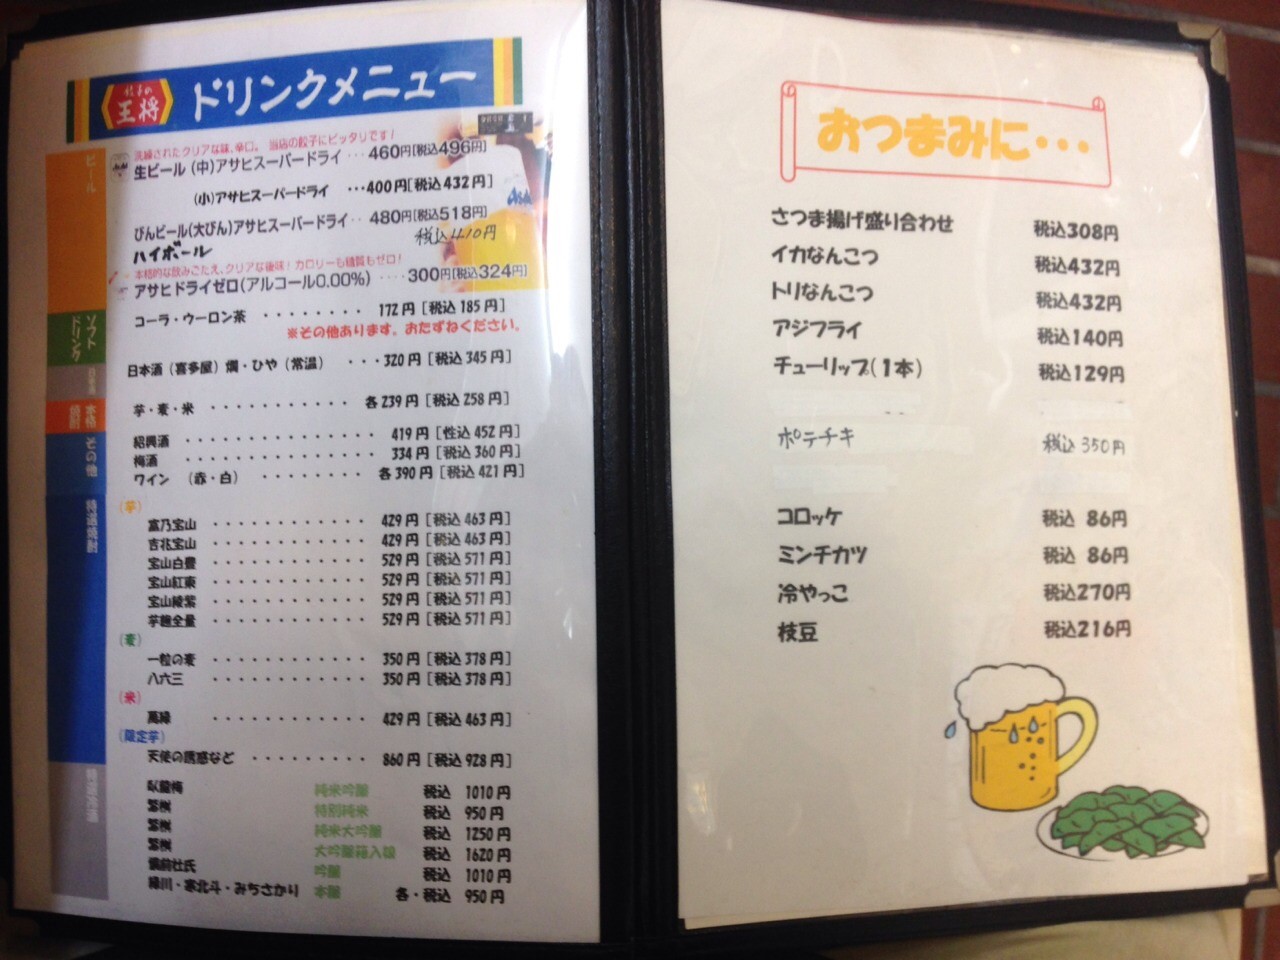 餃子の
王将
ドリンクメニュー
洗練されたクリアな味、辛口。当店の餃子にピッタリです!
生ビール (中)アサヒスーパードライ ・・・460円[税込496円]
(小)アサヒスーパードライ ・・・400円[税込432円]
びんビール(大びん)アサヒスーパードライ・・ 480円[税込518円]
税込410円
ハイボール
本格的な飲みごたえ、クリアな後味!カロリーも糖質もゼロ!
アサヒドライゼロ(アルコール0.00%) ・・・・300円[税込324円]
コーラ・ウーロン茶 ・・・・・・・・ 172円[税込185円]
※その他あります。おたずねください。
日本酒(喜多屋)燗・ひや(常温) ・・・320円[税込345円]
芋・麦・米 ・・・・・・・・・・・ 各239円[税込258円]
紹興酒 ・・・・・・・・・・・・・ 419円[税込452円]
梅酒 ・・・・・・・・・・・・・ 334円[税込360円]
ワイン (赤・白) ・・・・・・・・ 各390円[税込421円]
(芋)
富乃宝山 ・・・・・・・・・・・・ 429円[税込463円]
吉兆宝山 ・・・・・・・・・・・・ 429円[税込463円]
宝山白豊 ・・・・・・・・・・・・ 529円[税込571円]
宝山紅東 ・・・・・・・・・・・・ 529円[税込571円]
宝山綾紫 ・・・・・・・・・・・・ 529円[税込571円]
芋麹全量 ・・・・・・・・・・・・ 529円[税込571円]
(麦)
一粒の麦 ・・・・・・・・・・・・ 350円[税込378円]
八六三 ・・・・・・・・・・・・ 350円[税込378円]
(米)
萬緑 ・・・・・・・・・・・・ 429円[税込463円]
(限定芋)
天使の誘惑など ・・・・・・・・・ 860円[税込928円]
臥龍梅 純米吟醸 税込 1010円
繁桝 特別純米 税込 950円
繁桝 純米大吟醸 税込 1250円
繁桝 大吟醸箱入娘 税込 1620円
備前杜氏 吟醸 税込 1010円
緑川・寒北斗・みちさかり 本醸 各・税込 950円
ビール
ソフト
ドリンク
日本酒
本格
焼酎
その他
特選焼酎
特選冷酒
おつまみに・・・
さつま揚げ盛り合わせ 税込308円
イカなんこつ 税込432円
トリなんこつ 税込432円
アジフライ 税込140円
チューリップ(1本) 税込129円
ポテチキ 税込350円
コロッケ 税込 86円
ミンチカツ 税込 86円
冷やっこ 税込270円
枝豆 税込216円